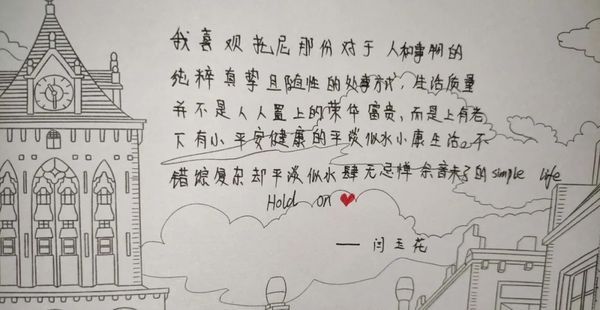 我喜欢托尼那份对于人和事物的
纯粹真挚且随性的处事方式，生活质量
并不是人人置上的荣华富贵，而是上有老
下有小平安健康的平淡似水小康生活。不
错综复杂却平淡似水肆无忌惮余音未了的simple life
Hold on
——闫玉花